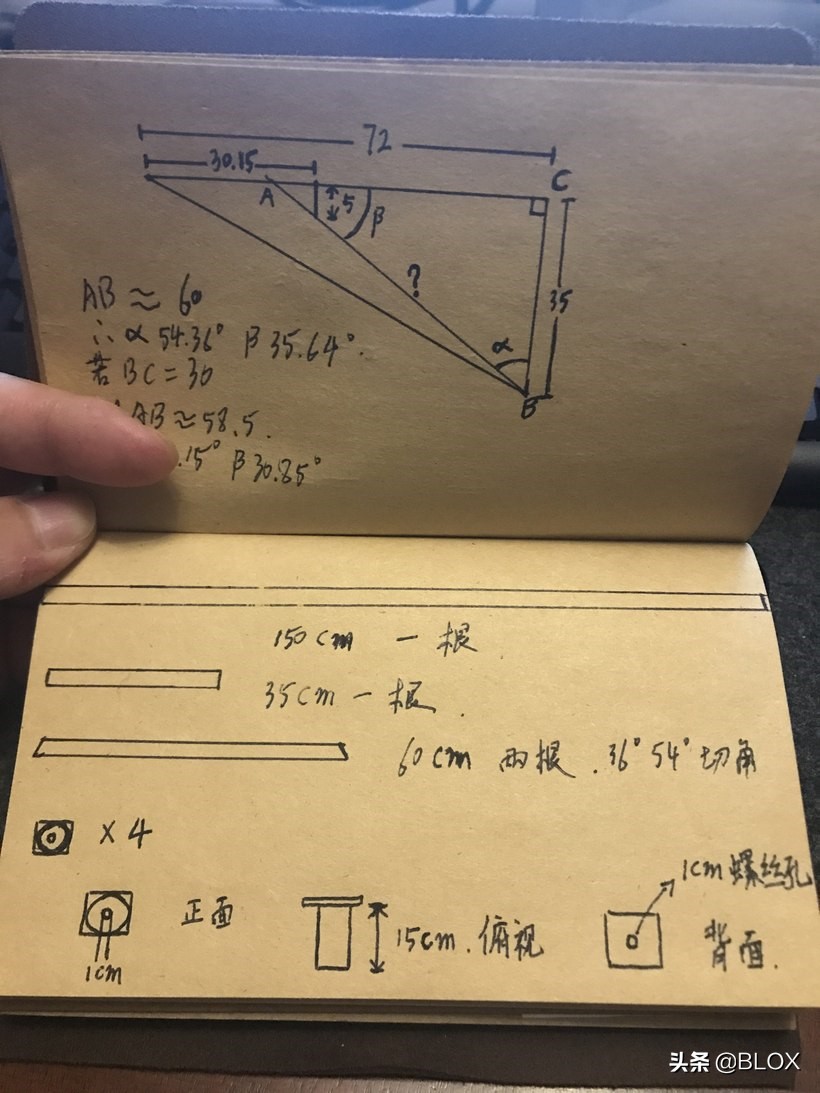 72
30.15
C
A
5
β
?
35
α
B
AB ≈ 60
∴ α 54.36° β 35.64°.
若 BC = 30
AB ≈ 58.5.
.15° β 30.85°
150cm 一根
35cm 一根.
60cm 两根. 36° 54° 切角
× 4
1cm 螺丝孔
正面
15cm. 俯视
背面.
1cm
头条 @BLOX